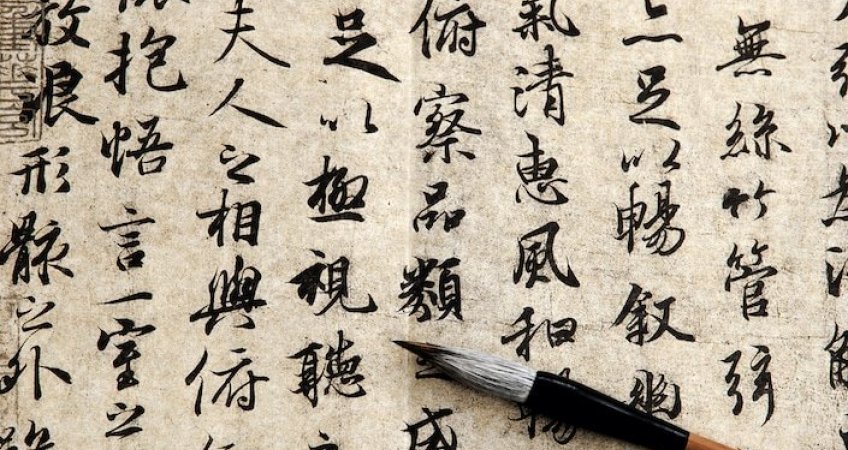 以為流觴
無絲竹管弦
亦足以暢叙幽
氣清惠風和暢
俯察品類之盛
足以極視聽之
夫人之相與俯
懷抱悟言一室之
放浪形骸之外雖